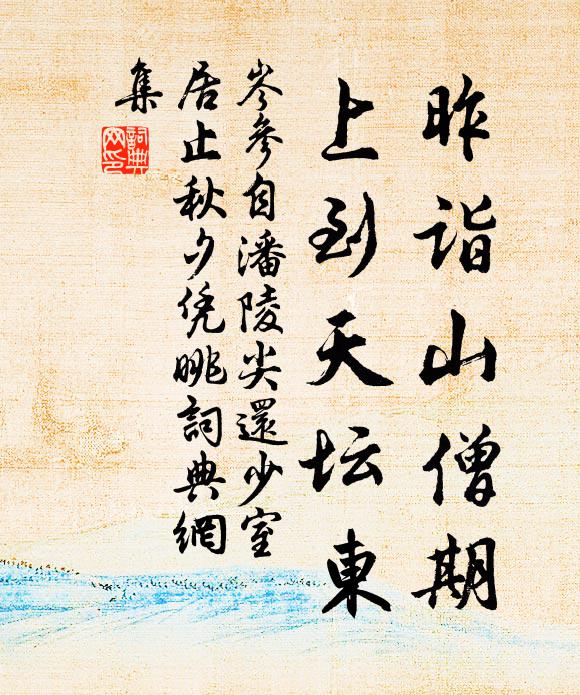 昨诣山僧期
上到天坛東
岑參自潘陵尖還少室
居止秋夕凭眺詞典網
集
詞典
网印